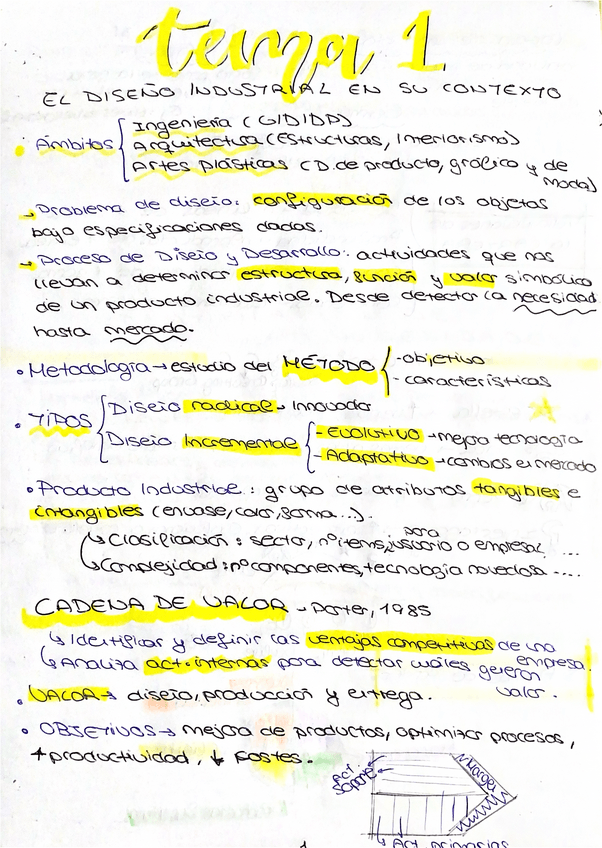 tema 1
EL DISEÑO INDUSTRIAL EN SU CONTEXTO
• Ámbitos { Ingeniería (GIDIDP)
Arquitectura (Estructuras, Interiorismo)
Artes plásticas (D. de producto, gráfico y de moda)
→ Problema de diseño: configuración de los objetos
bajo especificaciones dadas.
→ Proceso de Diseño y Desarrollo: actividades que nos
llevan a determinar estructura, función y valor simbólico
de un producto industrial. Desde detectar la necesidad
hasta mercado.
• Metodología → estudio del MÉTODO { - objetivo
- características
• TIPOS { Diseño radical → Innovador
Diseño Incremental { - Evolutivo → mejora tecnología
- Adaptativo → cambios el mercado
• Producto Industrial: grupo de atributos tangibles e
intangibles (envase, color, forma...).
↳ Clasificación: sector, nº items, para usuario o empresa ....
↳ Complejidad: nº componentes, tecnología novedosa ....
CADENA DE VALOR → Porter, 1985
↳ Identificar y definir las ventajas competitivas de una empresa.
↳ Analiza act. internas para detectar cuáles generan valor.
• VALOR → diseño, producción y entrega.
• OBJETIVOS → mejora de productos, optimizar procesos,
↑ productividad, ↓ costes.
Act. soporte
Margen
Act. primarias
1